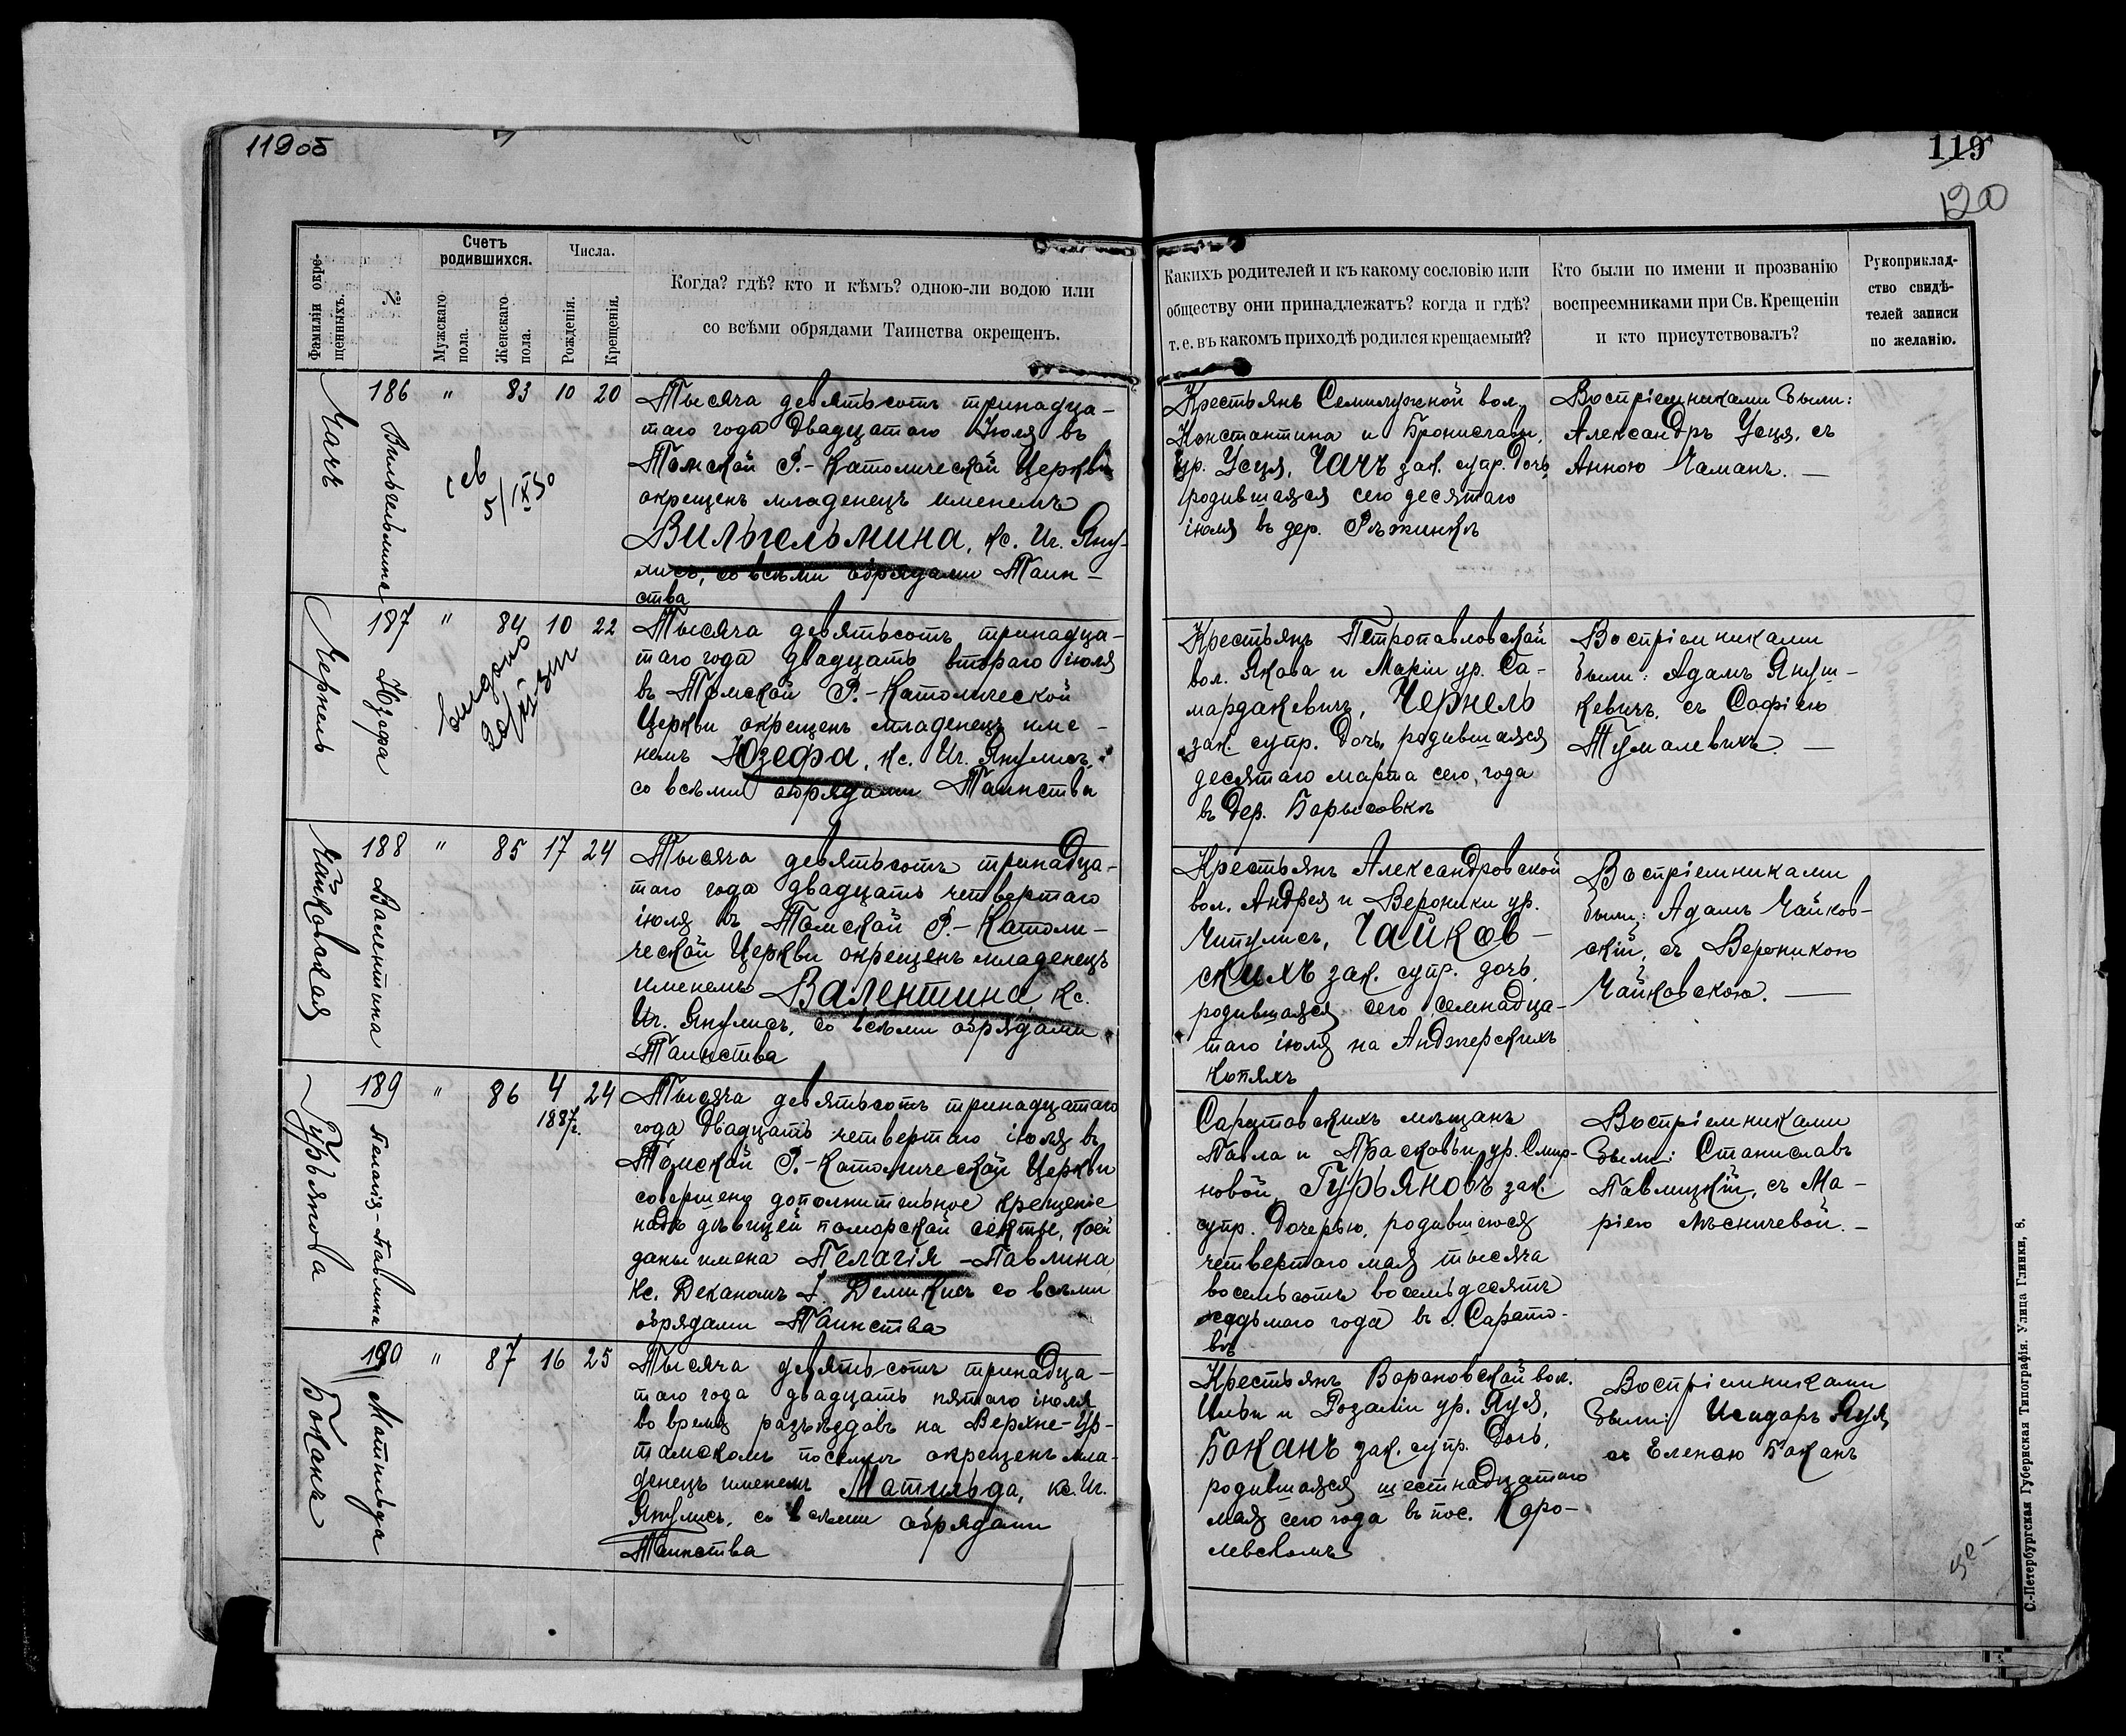 119об
119
120
Фамиліи окре-
щенныхъ.
№
Счетъ
родившихся.
Мужскаго
пола.
Женскаго
пола.
Числа.
Рожденія.
Крещенія.
Когда? гдѣ? кто и кѣмъ? одною-ли водою или
со всѣми обрядами Таинства окрещенъ.
Какихъ родителей и къ какому сословію или
обществу они принадлежатъ? когда и гдѣ?
т. е. въ какомъ приходѣ родился крещаемый?
Кто были по имени и прозванію
воспреемниками при Св. Крещеніи
и кто присутствовалъ?
Рукоприклад-
ство свидѣ-
телей записи
по желанію.
Чачъ
186
Вильгельмина
" 83 10 20
5/IX 30
Тысяча девятьсотъ тринадца-
таго года двадцатаго Іюля въ
Томской Р.-Католической Церкви
окрещенъ младенецъ именемъ
Вильгельмина, кс. Иг. Яну-
лисъ, со всѣми обрядами Таин-
ства
Крестьянъ Семилужной вол.
Константина и Брониславы,
ур. Усця, Чачъ зак. супр. дочь,
родившаяся сего десятаго
іюля въ дер.
Воспріемниками были:
Александръ Усця, съ
Анною Чаманъ. —
Чернель
187
Юзефа
" 84 10 22
выдано
Тысяча девятьсотъ тринадца-
таго года двадцать втораго іюля
въ Томской Р.-Католической
Церкви окрещенъ младенецъ име-
немъ Юзефа, кс. Иг. Янулисъ,
со всѣми обрядами Таинства
Крестьянъ Петропавловской
вол. Якова и Маріи ур. Са-
мардакевичъ, Чернель
зак. супр. дочь, родившаяся
десятаго марта сего года
въ дер. Борысовкѣ
Воспріемниками
были: Адамъ Януш-
кевичъ, съ Софіею
Тумалевичъ. —
Чайковская
188
Валентина
" 85 17 24
Тысяча девятьсотъ тринадца-
таго года двадцать четвертаго
іюля въ Томской Р.-Католи-
ческой Церкви окрещенъ младенецъ
именемъ Валентина, кс.
Иг. Янулисъ, со всѣми обрядами
Таинства
Крестьянъ Александровской
вол. Андрея и Вероники ур.
Чипулисъ, Чайков-
скихъ зак. супр. дочь,
родившаяся сего семнадца-
таго іюля на Анджерскихъ
копяхъ
Воспріемниками
были: Адамъ Чайков-
скій, съ Вероникою
Чайковскою. —
Гурьянова
189
Пелагія-Павлина
" 86 4 24
1887г.
Тысяча девятьсотъ тринадцатаго
года двадцать четвертаго іюля въ
Томской Р.-Католической Церкви
совершено дополнительное крещеніе
надъ дѣвицей поморской секты, коей
даны имена Пелагія-Павлина
кс. Деканомъ І. Демикисъ со всѣми
обрядами Таинства
Саратовскихъ мѣщанъ
Павла и Прасковьи ур. Смир-
новой, Гурьяновъ зак.
супр. дочерью, родившеюся
четвертаго мая тысяча
восемьсотъ восемьдесятъ
седьмаго года въ г. Сарато-
вѣ
Воспріемниками
были: Станиславъ
Павлицкій, съ Ма-
ріею Мѣсничевой. —
Боканъ
190
Матильда
" 87 16 25
Тысяча девятьсотъ тринадца-
таго года двадцать пятаго іюля
во время разъѣздовъ на Верхне-Ур-
тамскомъ поселкѣ окрещенъ мла-
денецъ именемъ Матильда, кс. Иг.
Янулисъ, со всѣми обрядами
Таинства
Крестьянъ Вороновской вол.
Ильи и Розаліи ур. Яуя,
Боканъ зак. супр. дочь,
родившаяся шестнадцатаго
мая сего года въ пос. Коро-
левскомъ
Воспріемниками
были: Исидоръ Яуя,
съ Еленою Боканъ
С.-Петербургская Губернская Типографія. Улица Глинки, 8.